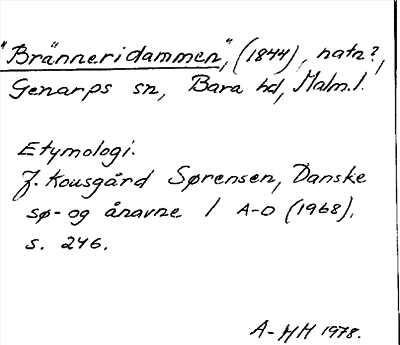 "Bränneridammen", (1844), natn?,
Genarps sn, Bara hd, Malm.l.
Etymologi.
J. Kousgård Sørensen, Danske
sø- og ånavne 1 A-D (1968),
s. 246.
A-MH 1978.